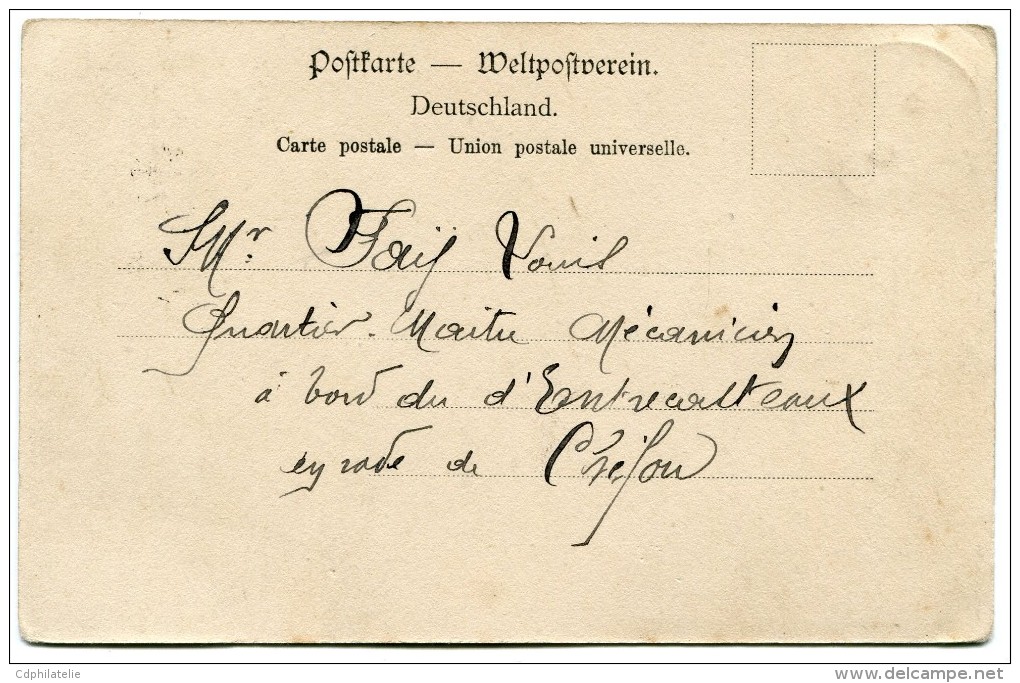 Postkarte — Weltpostverein.
Deutschland.
Carte postale — Union postale universelle.
Mr Louis
Quartier-Maitre Mécanicien
à bord du d'Entrecasteaux
en rade de
Cdphilatelie
www.delcampe.net